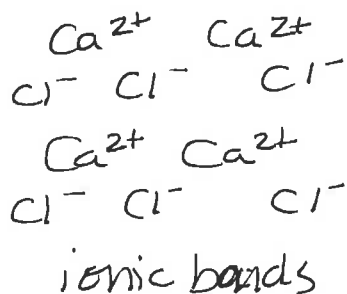 Ca²⁺ Ca²⁺
Cl⁻ Cl⁻ Cl⁻
Ca²⁺ Ca²⁺
Cl⁻ Cl⁻ Cl⁻
ionic bonds